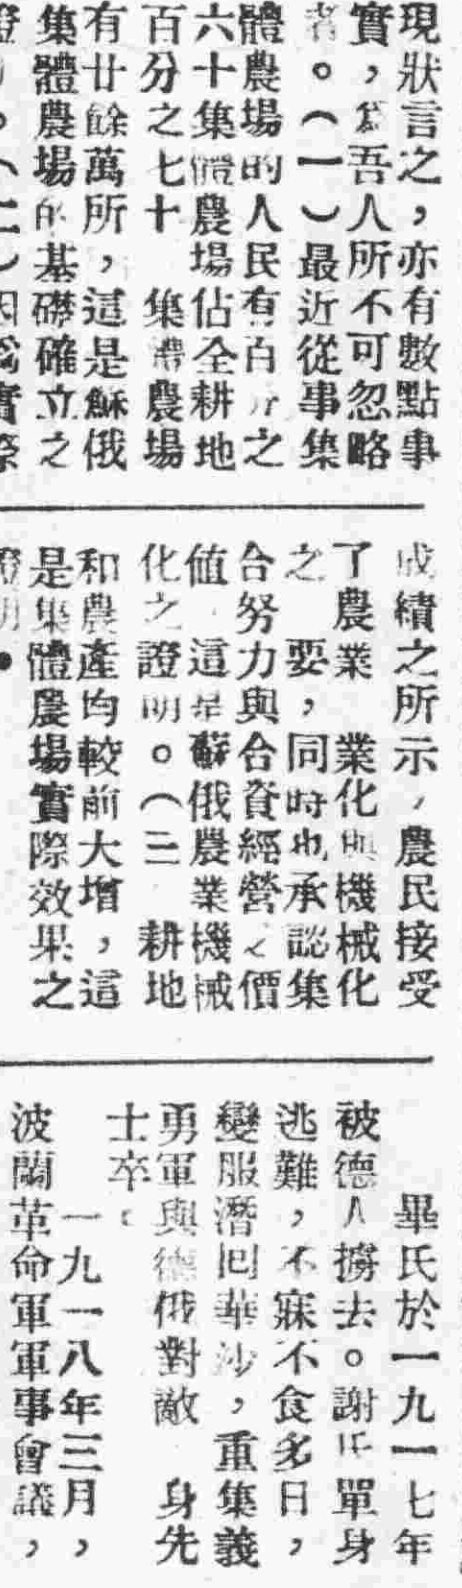 現狀言之，亦有數點事
實，為吾人所不可忽略
者。（一）最近從事集
體農場的人民有百分之
六十集體農場佔全耕地
百分之七十 集體農場
有廿餘萬所，這是蘇俄
集體農場的基礎確立之
證 。（二）因為實際
成績之所示，農民接受
了農業 業化與機械化
之 要，同時也承認集
合努力與合資經營之價
值 這是蘇俄農業機械
化之 證明。（三 耕地
和農產均較前大增，這
是集體農場實際效果之
證明●
畢氏於一九一七年
被德人擄去。謝氏單身
逃難，不寐不食多日，
變服潛回華沙，重集義
勇軍與德俄對敵 身先
士卒。
一九一八年三月，
波蘭革命軍軍事會議，